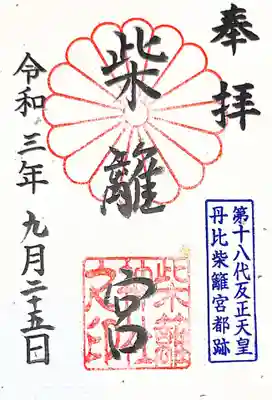 奉拝
第十八代反正天皇
丹比柴籬宮都跡
柴籬宮
柴籬
神社
之印
令和三年 九月二十五日